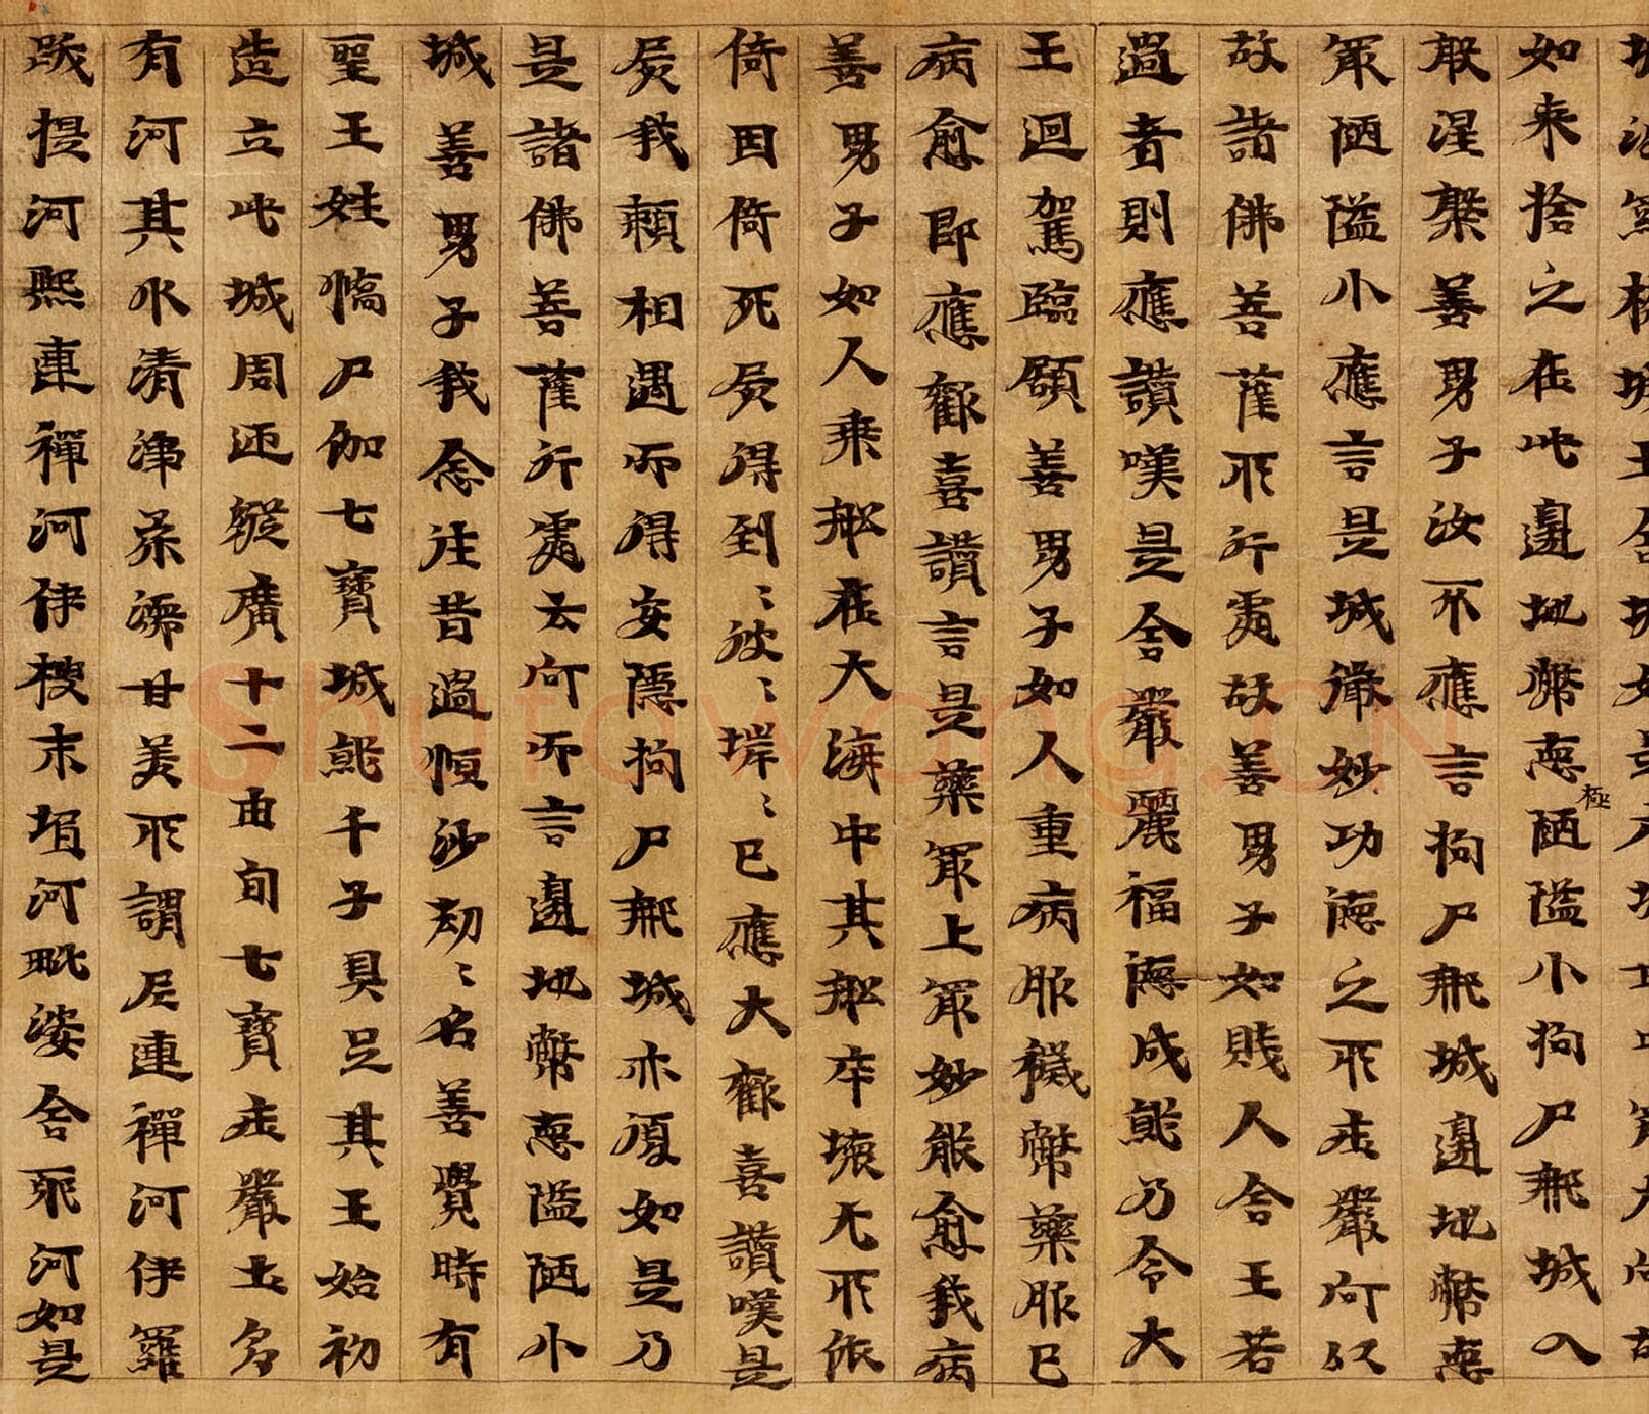 如来捨之在此邊地弊惡極陋隘小拘尸那城入
般涅槃善男子汝不應言拘尸那城邊地弊惡
冣陋隘小應言是城微妙功德之所莊嚴何以
故諸佛菩薩所行處故善男子如賤人舍王若
過者則應讚嘆是舍嚴麗福德成就乃令大
王迴駕臨顧善男子如人重病服穢弊藥服已
病愈即應歡喜讚言是藥冣上冣妙能愈我病
善男子如人乘船在大海中其船卒壞无所依
倚因倚死屍得到〻彼〻岸〻已應大歡喜讚嘆是
屍我頼相遇而得安隱拘尸那城亦復如是乃
是諸佛菩薩行處云何而言邊地弊惡隘陋小
城善男子我念往昔過恒沙劫〻名善覺時有
聖王姓憍尸伽七寶城就千子具足其王始初
造立此城周迊縱廣十二由旬七寶莊嚴土多
有河其水清淨柔濡甘美所謂尼連禪河伊羅
跋提河熙連禪河伊搜末坻河毗婆舍那河如是